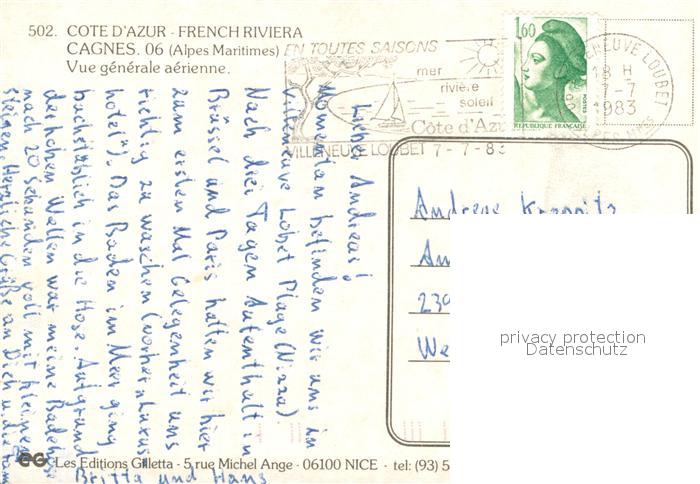 502. COTE D'AZUR - FRENCH RIVIERA
CAGNES. 06 (Alpes Maritimes)
Vue générale aérienne.
EN TOUTES SAISONS
mer
rivière
soleil
Côte d'Azur
VILLENEUVE LOUBET 7-7-83
1,60
POSTES
REPUBLIQUE FRANÇAISE
NEUVE LOUBET
18 H
7-7
1983
ALPES Mmes
Lieber Andreas!
Momentan befinden wir uns in
Villeneuve Lobet Plage (Nizza).
Nach drei Tagen Aufenthalt in
Brüssel und Paris hatten wir hier
zum ersten Mal Gelegenheit uns
richtig zu waschen (vorher „Luxus-
hotel"). Das Baden im Meer ging
buchstäblich in die Hose. Aufgrund
der hohen Wellen war meine Badehose
nach 20 Sekunden voll mit kleinen
Steinen. Herzliche Grüße an Dich u. die
Britta und Hans
Andreas
An
239
We
privacy protection
Datenschutz
EG Les Editions Gilletta - 5 rue Michel Ange - 06100 NICE - tel: (93) 5